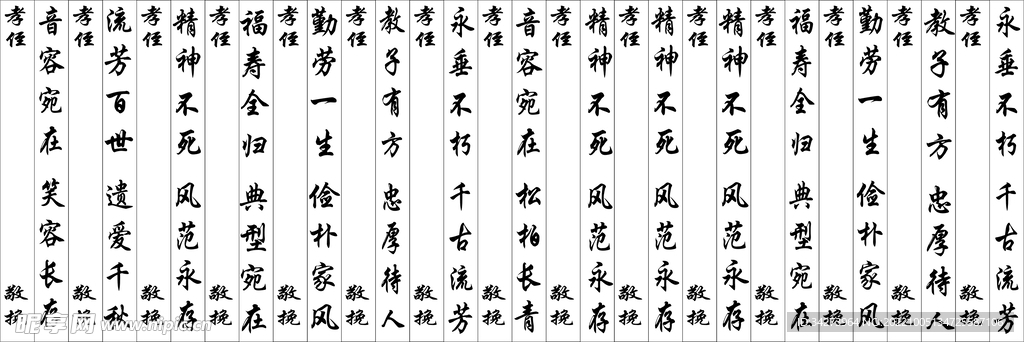 永垂不朽 千古流芳
孝侄 敬挽
教子有方 忠厚待人
孝侄 敬挽
勤劳一生 俭朴家风
孝侄 敬挽
福寿全归 典型宛在
孝侄 敬挽
精神不死 风范永存
孝侄 敬挽
精神不死 风范永存
孝侄 敬挽
精神不死 风范永存
孝侄 敬挽
音容宛在 松柏长青
孝侄 敬挽
永垂不朽 千古流芳
孝侄 敬挽
教子有方 忠厚待人
孝侄 敬挽
勤劳一生 俭朴家风
孝侄 敬挽
福寿全归 典型宛在
孝侄 敬挽
精神不死 风范永存
孝侄 敬挽
流芳百世 遗爱千秋
孝侄 敬挽
音容宛在 笑容长存
孝侄 敬挽
昵享网 www.nipic.cn